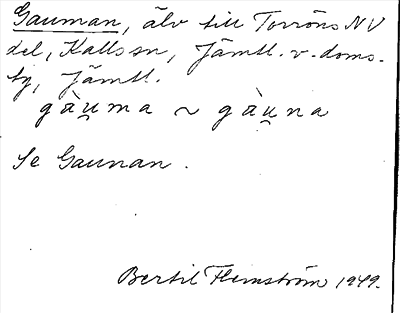 Gauman, älv till Torröns NV
del, Kalls sn, Jämtl. v. doms.
tg, Jämtl.
gàu̯ma ~ gàu̯na
Se Gaunan.
Bertil Flemström 1949.